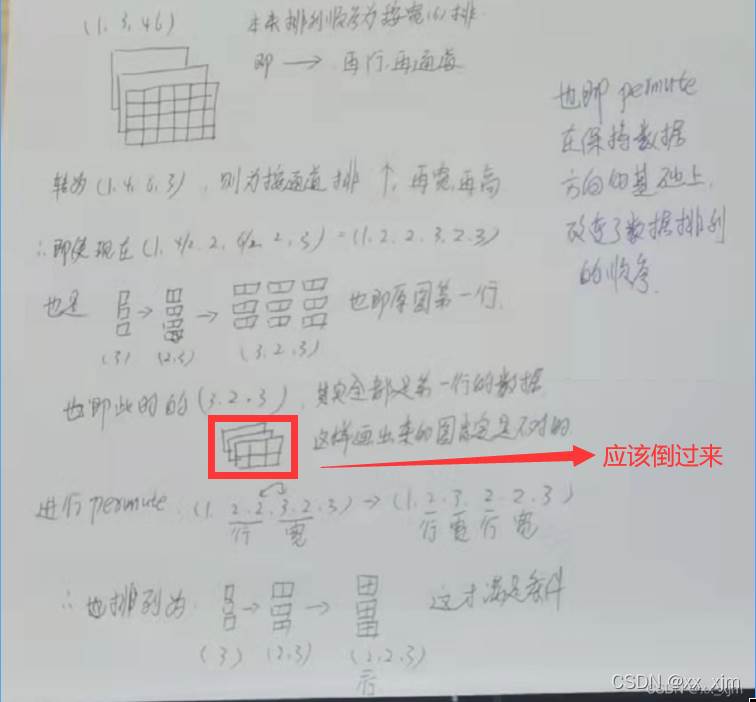 (1, 3, 4, 6) 本来排列顺序为按宽(6)排.
即 → 再行, 再通道
转为 (1, 4, 6, 3), 则为按通道排 ↑, 再宽, 再高
∴即使现在 (1, 4/2, 2, 6/2, 2, 3) = (1, 2, 2, 3, 2, 3)
也是 → → 也即原图第一行.
(3) (2,3) (3,2,3)
也即此时的 (3, 2, 3), 其实全部是第一行的数据
这样画出来的图肯定是不对的
应该倒过来
进行 permute, (1, 2, 2, 3, 2, 3) → (1, 2, 3, 2, 2, 3)
行 宽 行 宽 行 宽
∴也排列为 → → 这才满足条件
(3) (2,3) (2,2,3)
行
也即 permute
在保持数据
方向的基础上,
改变了数据排列
的顺序.
CSDN @xx_xjm